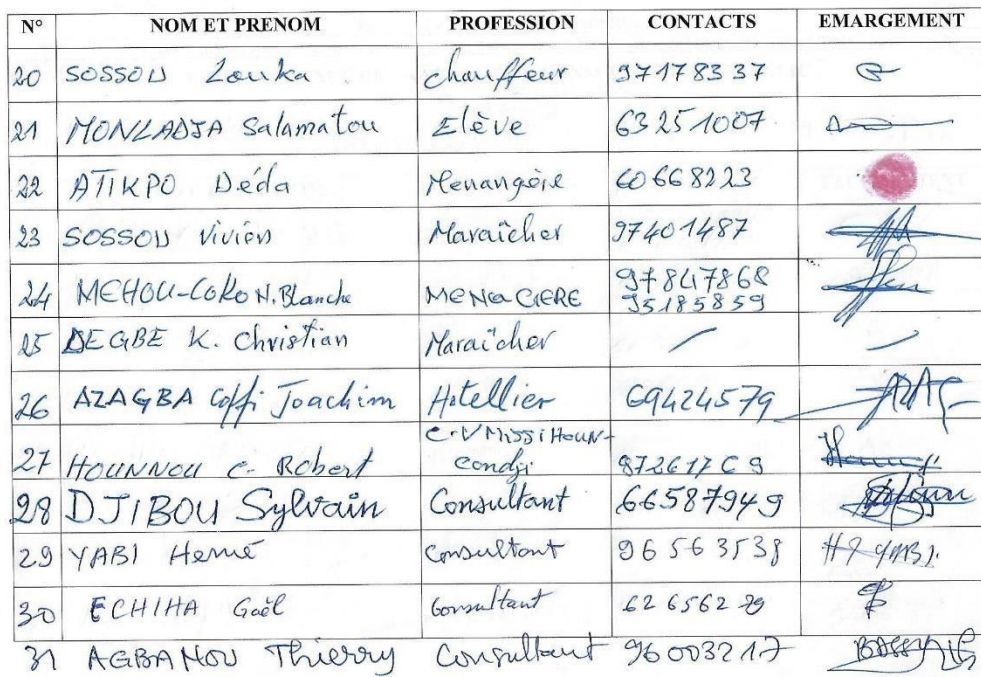 N° NOM ET PRENOM PROFESSION CONTACTS EMARGEMENT
20 SOSSOU Louka chauffeur 97178337
21 MONLADJA Salamatou Elève 63251007
22 ATIKPO Déda Menangère 60668223
23 SOSSOU Vivien Maraîcher 97401487
24 MEHOU-LOKO N. Blanche MENAGERE 97847868
95185859
25 DEGBE K. Christian Maraîcher
26 AZAGBA Coffi Joachim Hôtellier 69424579
27 HOUNNOU C. Robert C.V Missi Houn-
Condji 87261769
28 DJIBOU Sylvain Consultant 66587949
29 YABI Hervé Consultant 96563538 YABI
30 ECHIHA Gaël Consultant 62656229
31 AGBANOU Thierry Consultant 96003217